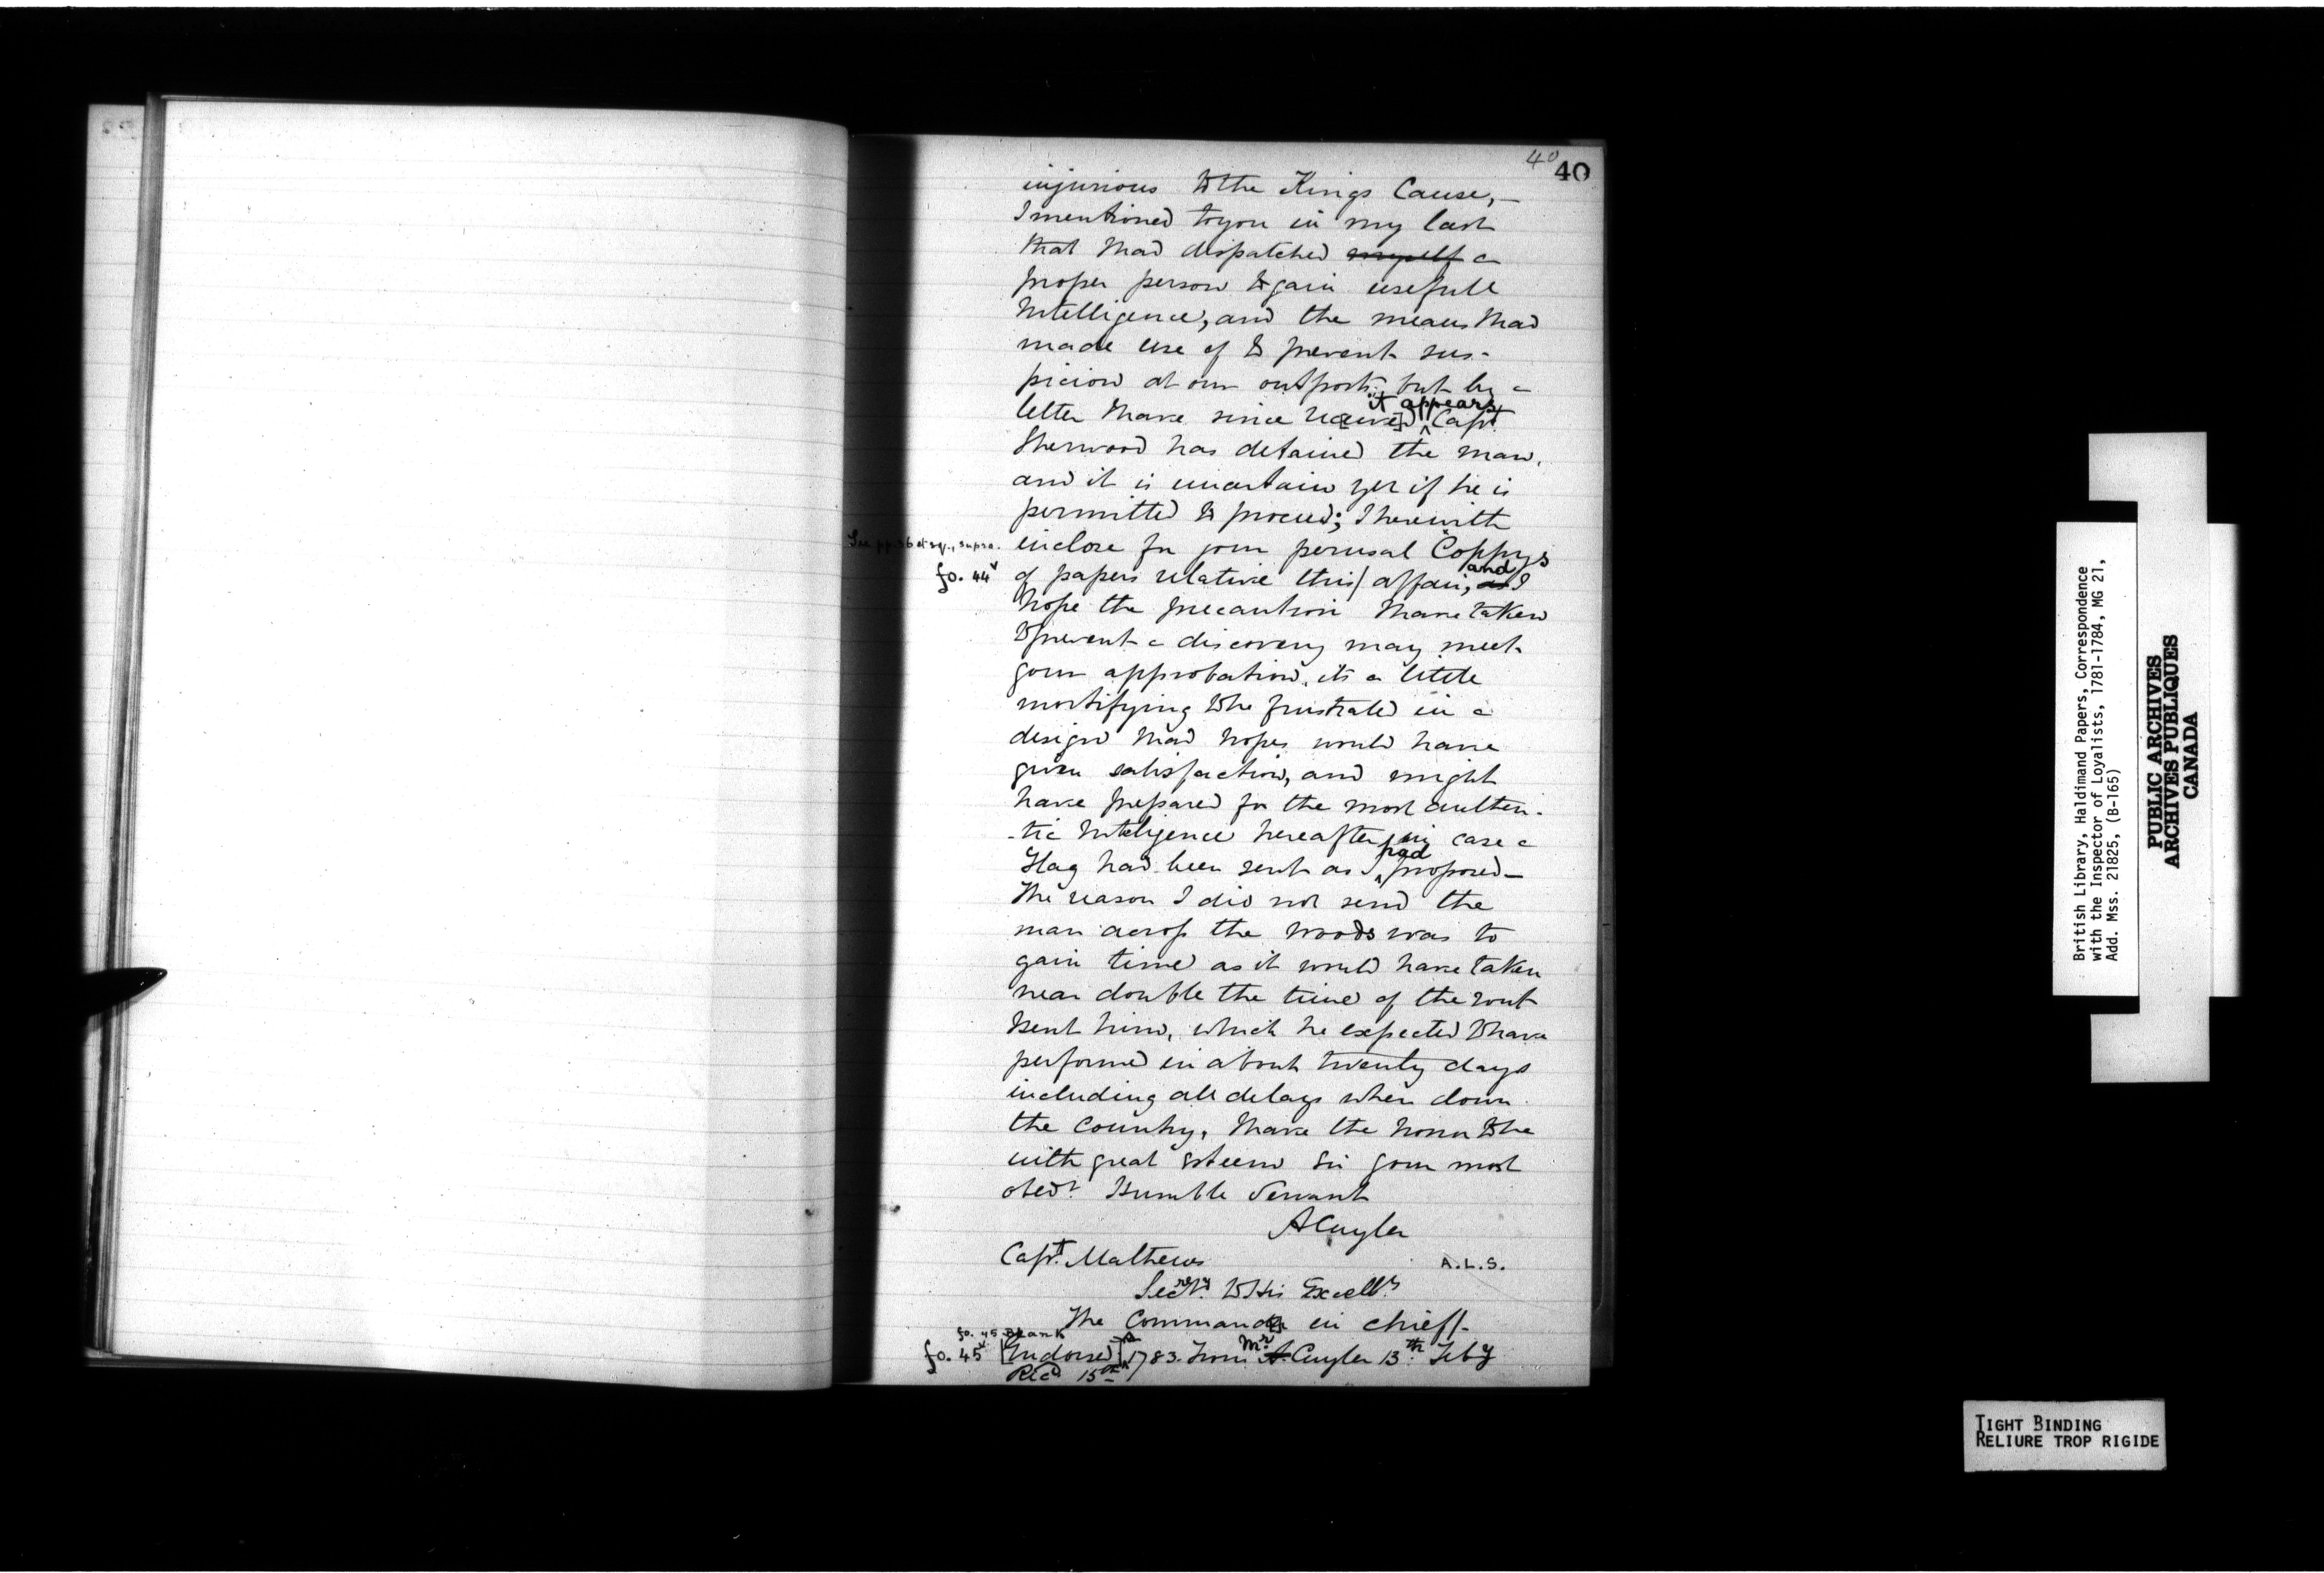 40 40
injurious to the Kings Cause,—
I mentioned to you in my last
that I had dispatched myself a
proper person to gain usefull
Intelligence, and the means I had
made use of to prevent sus-
picion at our outposts, but by a
it appears
letter I have since rec[eive]d Capt.
Sherwood has detained the man,
and it is uncertain yet if he is
permitted to proceed; I herewith
See pp. 36 et sq., supra. inclose for your perusal Coppys
and
fo. 44v of papers relative this/ affair, as I
hope the precaution I have taken
to prevent a discovery may meet
your approbation, its a little
mortifying to be frustrated in a
design I had hopes would have
given satisfaction, and might
have prepared for the most authen-
-tic Inteligence hereafter, in case a
had
Flag had been sent as I proposed—
The reason I did not send the
man across the woods was to
gain time as it would have taken
near double the time of the rout
I sent him, which he expected to have
performed in about twenty days
including all delays when down
the Country, I have the honor to be
with great Esteem Sir your most
obedt. Humble Servant
ACuyler
Capt. Mathews
A.L.S.
Secrety. to His Excelly.
The Commander in chieff.
fo. 45 Blank
fo. 45v [Endorsed] 1783. From Mr. A. Cuyler 13th. Feby
Recd 15th
British Library, Haldimand Papers, Correspondence
with the Inspector of Loyalists, 1781-1784, MG 21,
Add. Mss. 21825, (B-165)
PUBLIC ARCHIVES
ARCHIVES PUBLIQUES
CANADA
TIGHT BINDING
RELIURE TROP RIGIDE